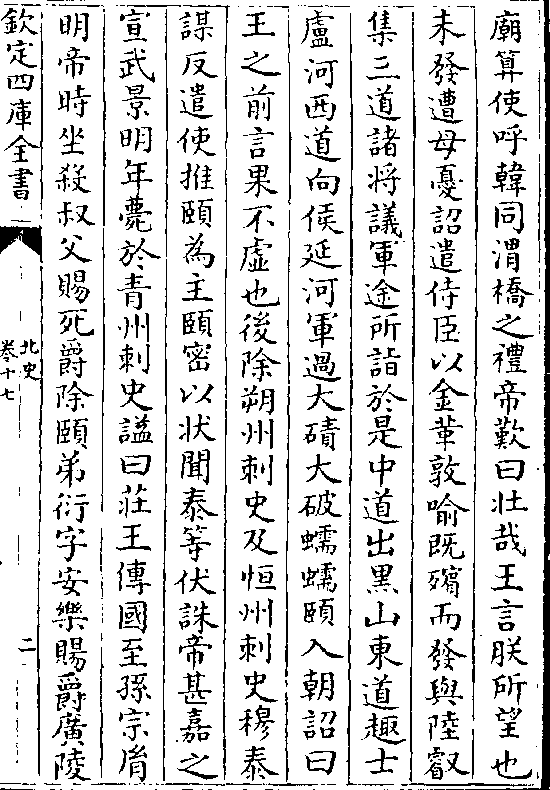 廟算使呼韓同渭橋之禮帝歎曰壯哉王言朕所望也
未發遭母憂詔遣侍臣以金革敦喻既殯而發與陸叡
集三道諸將議軍途所詣於是中道出黒山東道趣士
盧河西道向侯延河軍過大磧大破蠕蠕頤入朝詔曰
王之前言果不虛也後除朔州刺史及恒州刺史穆泰
謀反遣使推頤為主頤密以狀聞泰等伏誅帝甚嘉之
宣武景明年薨於青州刺史諡曰莊王傳國至孫宗胤
明帝時坐殺叔父賜死爵除頤弟衍字安樂賜爵廣陵
欽定四庫全書
北史
卷十七
二